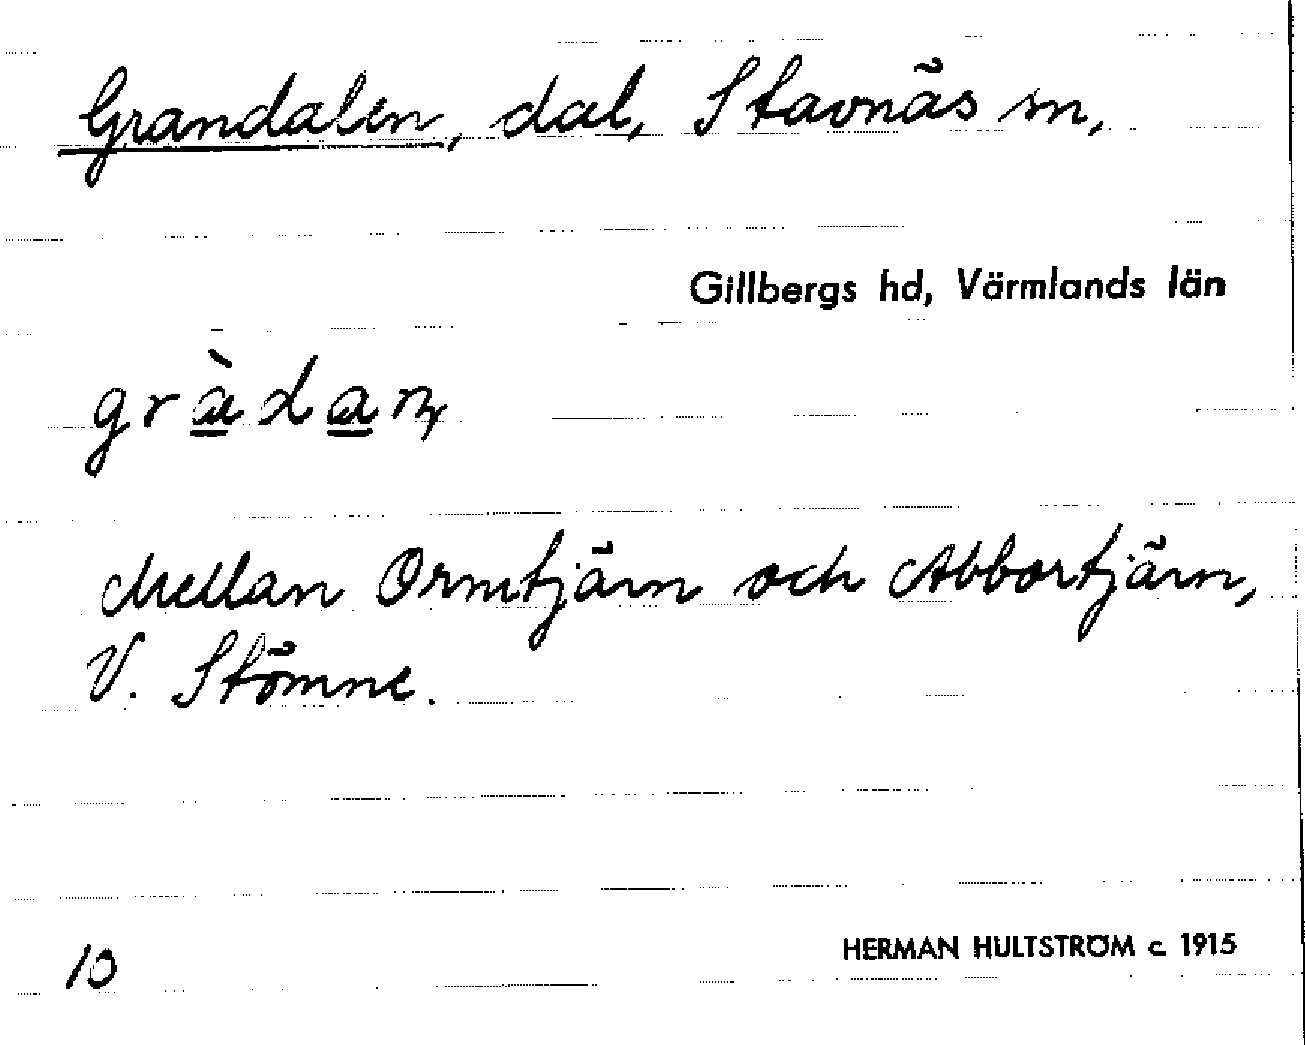 Grandalen, dal, Stavnäs sn,
Gillbergs hd, Värmlands län
gràdan,
Mellan Ormtjärn och Abbortjärn,
V. Stömne.
10
HERMAN HULTSTRÖM c. 1915